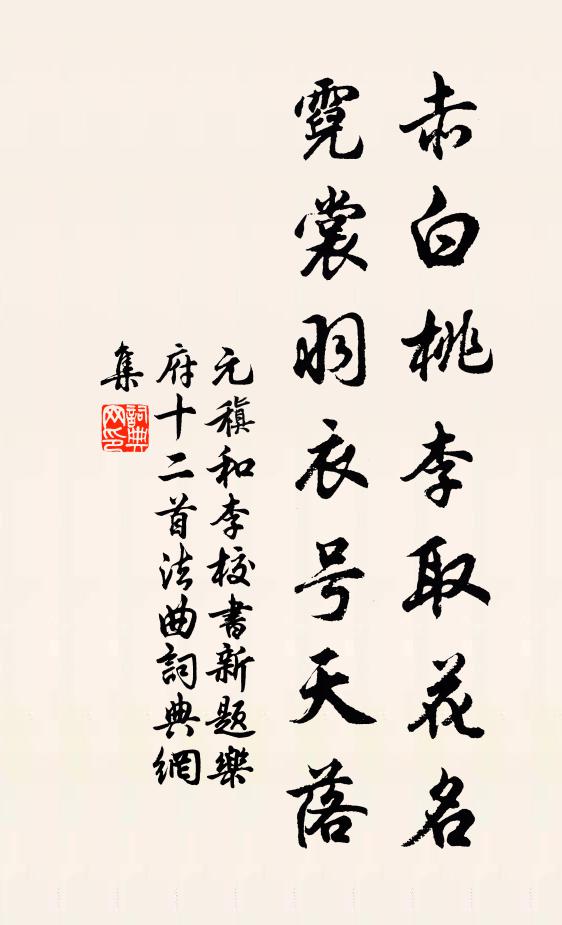 赤白桃李取花名
霓裳羽衣号天落
元稹和李校書新題樂
府十二首法曲詞典網
集
詞典网印